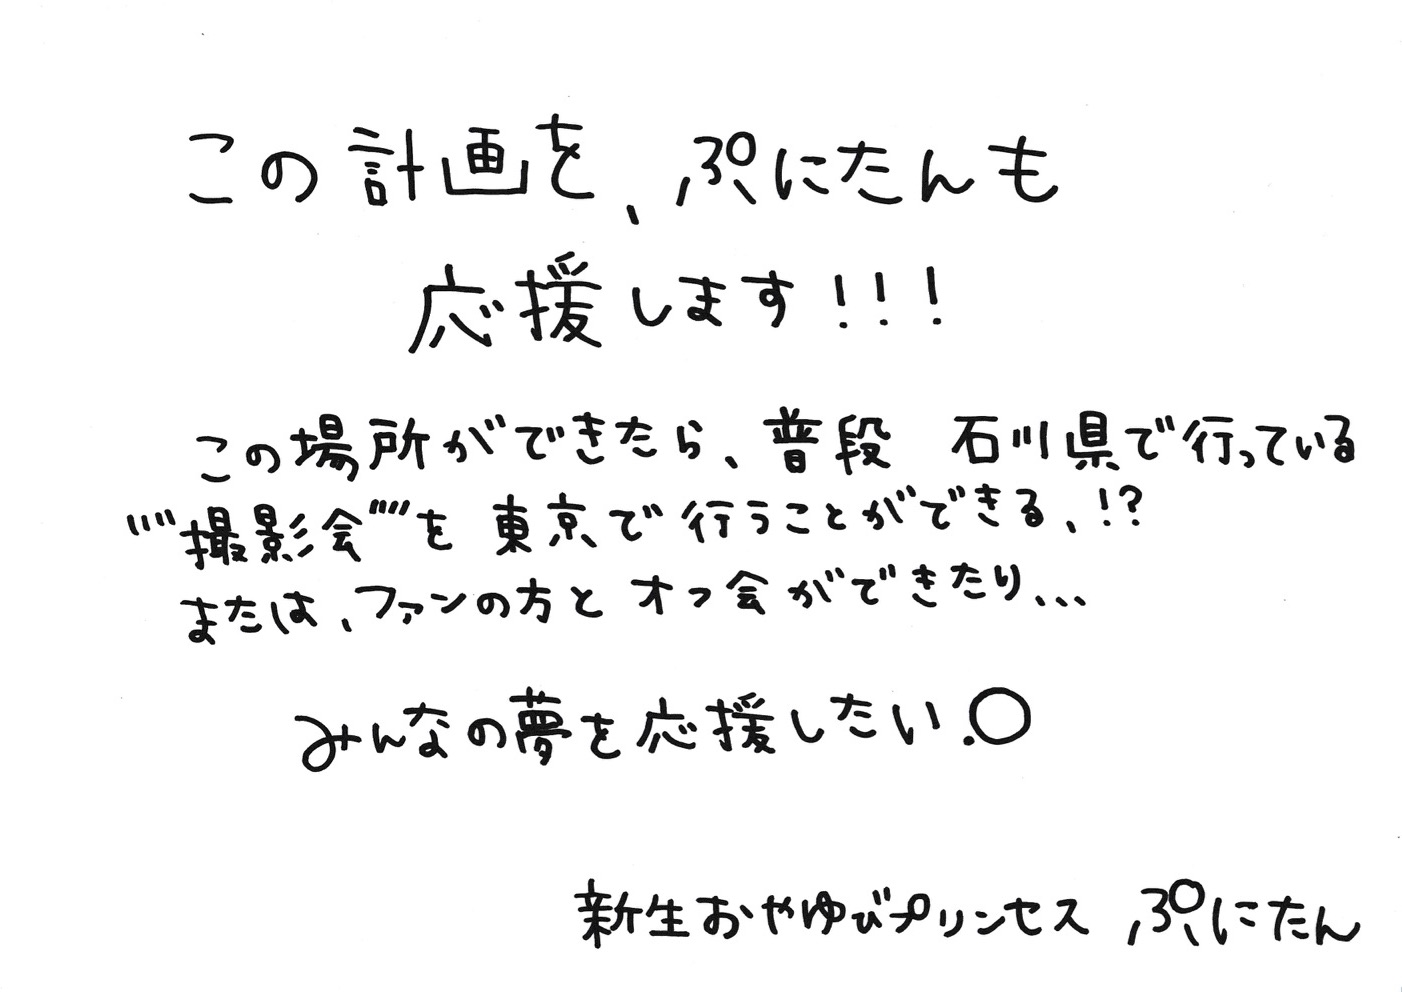 この計画を、ぷにたんも
応援します!!!
この場所ができたら、普段 石川県で行っている
""撮影会""を東京で行うことができる、!?
または、ファンの方とオフ会ができたり、、、
みんなの夢を応援したい.○
新生おやゆびプリンセス ぷにたん